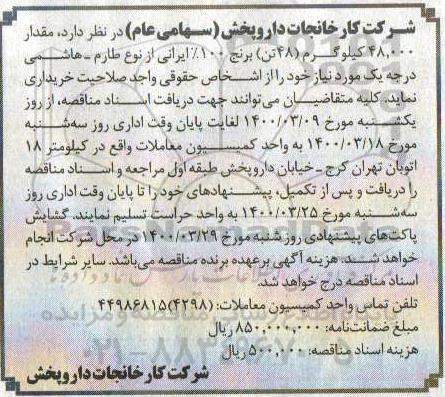 شرکت کارخانجات داروپخش (سهامی عام) در نظر دارد، مقدار
۴۸,۰۰۰ کیلوگرم (۴۸تن) برنج ۱۰۰٪ ایرانی از نوع طارم ـ هاشمی
درجه یک مورد نیاز خود را از اشخاص حقوقی واجد صلاحیت خریداری
نماید. کلیه متقاضیان می‌توانند جهت دریافت اسناد مناقصه، از روز
یکشنبه مورخ ۱۴۰۰/۰۳/۰۹ لغایت پایان وقت اداری روز سه‌شنبه
مورخ ۱۴۰۰/۰۳/۱۸ به واحد کمیسیون معاملات واقع در کیلومتر ۱۸
اتوبان تهران کرج ـ خیابان داروپخش طبقه اول مراجعه و اسناد مناقصه
را دریافت و پس از تکمیل، پیشنهادهای خود را تا پایان وقت اداری روز
سه‌شنبه مورخ ۱۴۰۰/۰۳/۲۵ به واحد حراست تسلیم نمایند. گشایش
پاکت‌های پیشنهادی روز شنبه مورخ ۱۴۰۰/۰۳/۲۹ در محل شرکت انجام
خواهد شد. هزینه آگهی برعهده برنده مناقصه می‌باشد. سایر شرایط در
اسناد مناقصه درج خواهد شد.
تلفن تماس واحد کمیسیون معاملات: (۴۲۹۸) ۴۴۹۸۶۸۱۵
مبلغ ضمانت‌نامه: ۸۵۰,۰۰۰,۰۰۰ ریال
هزینه اسناد مناقصه: ۵۰۰,۰۰۰ ریال
شرکت کارخانجات داروپخش